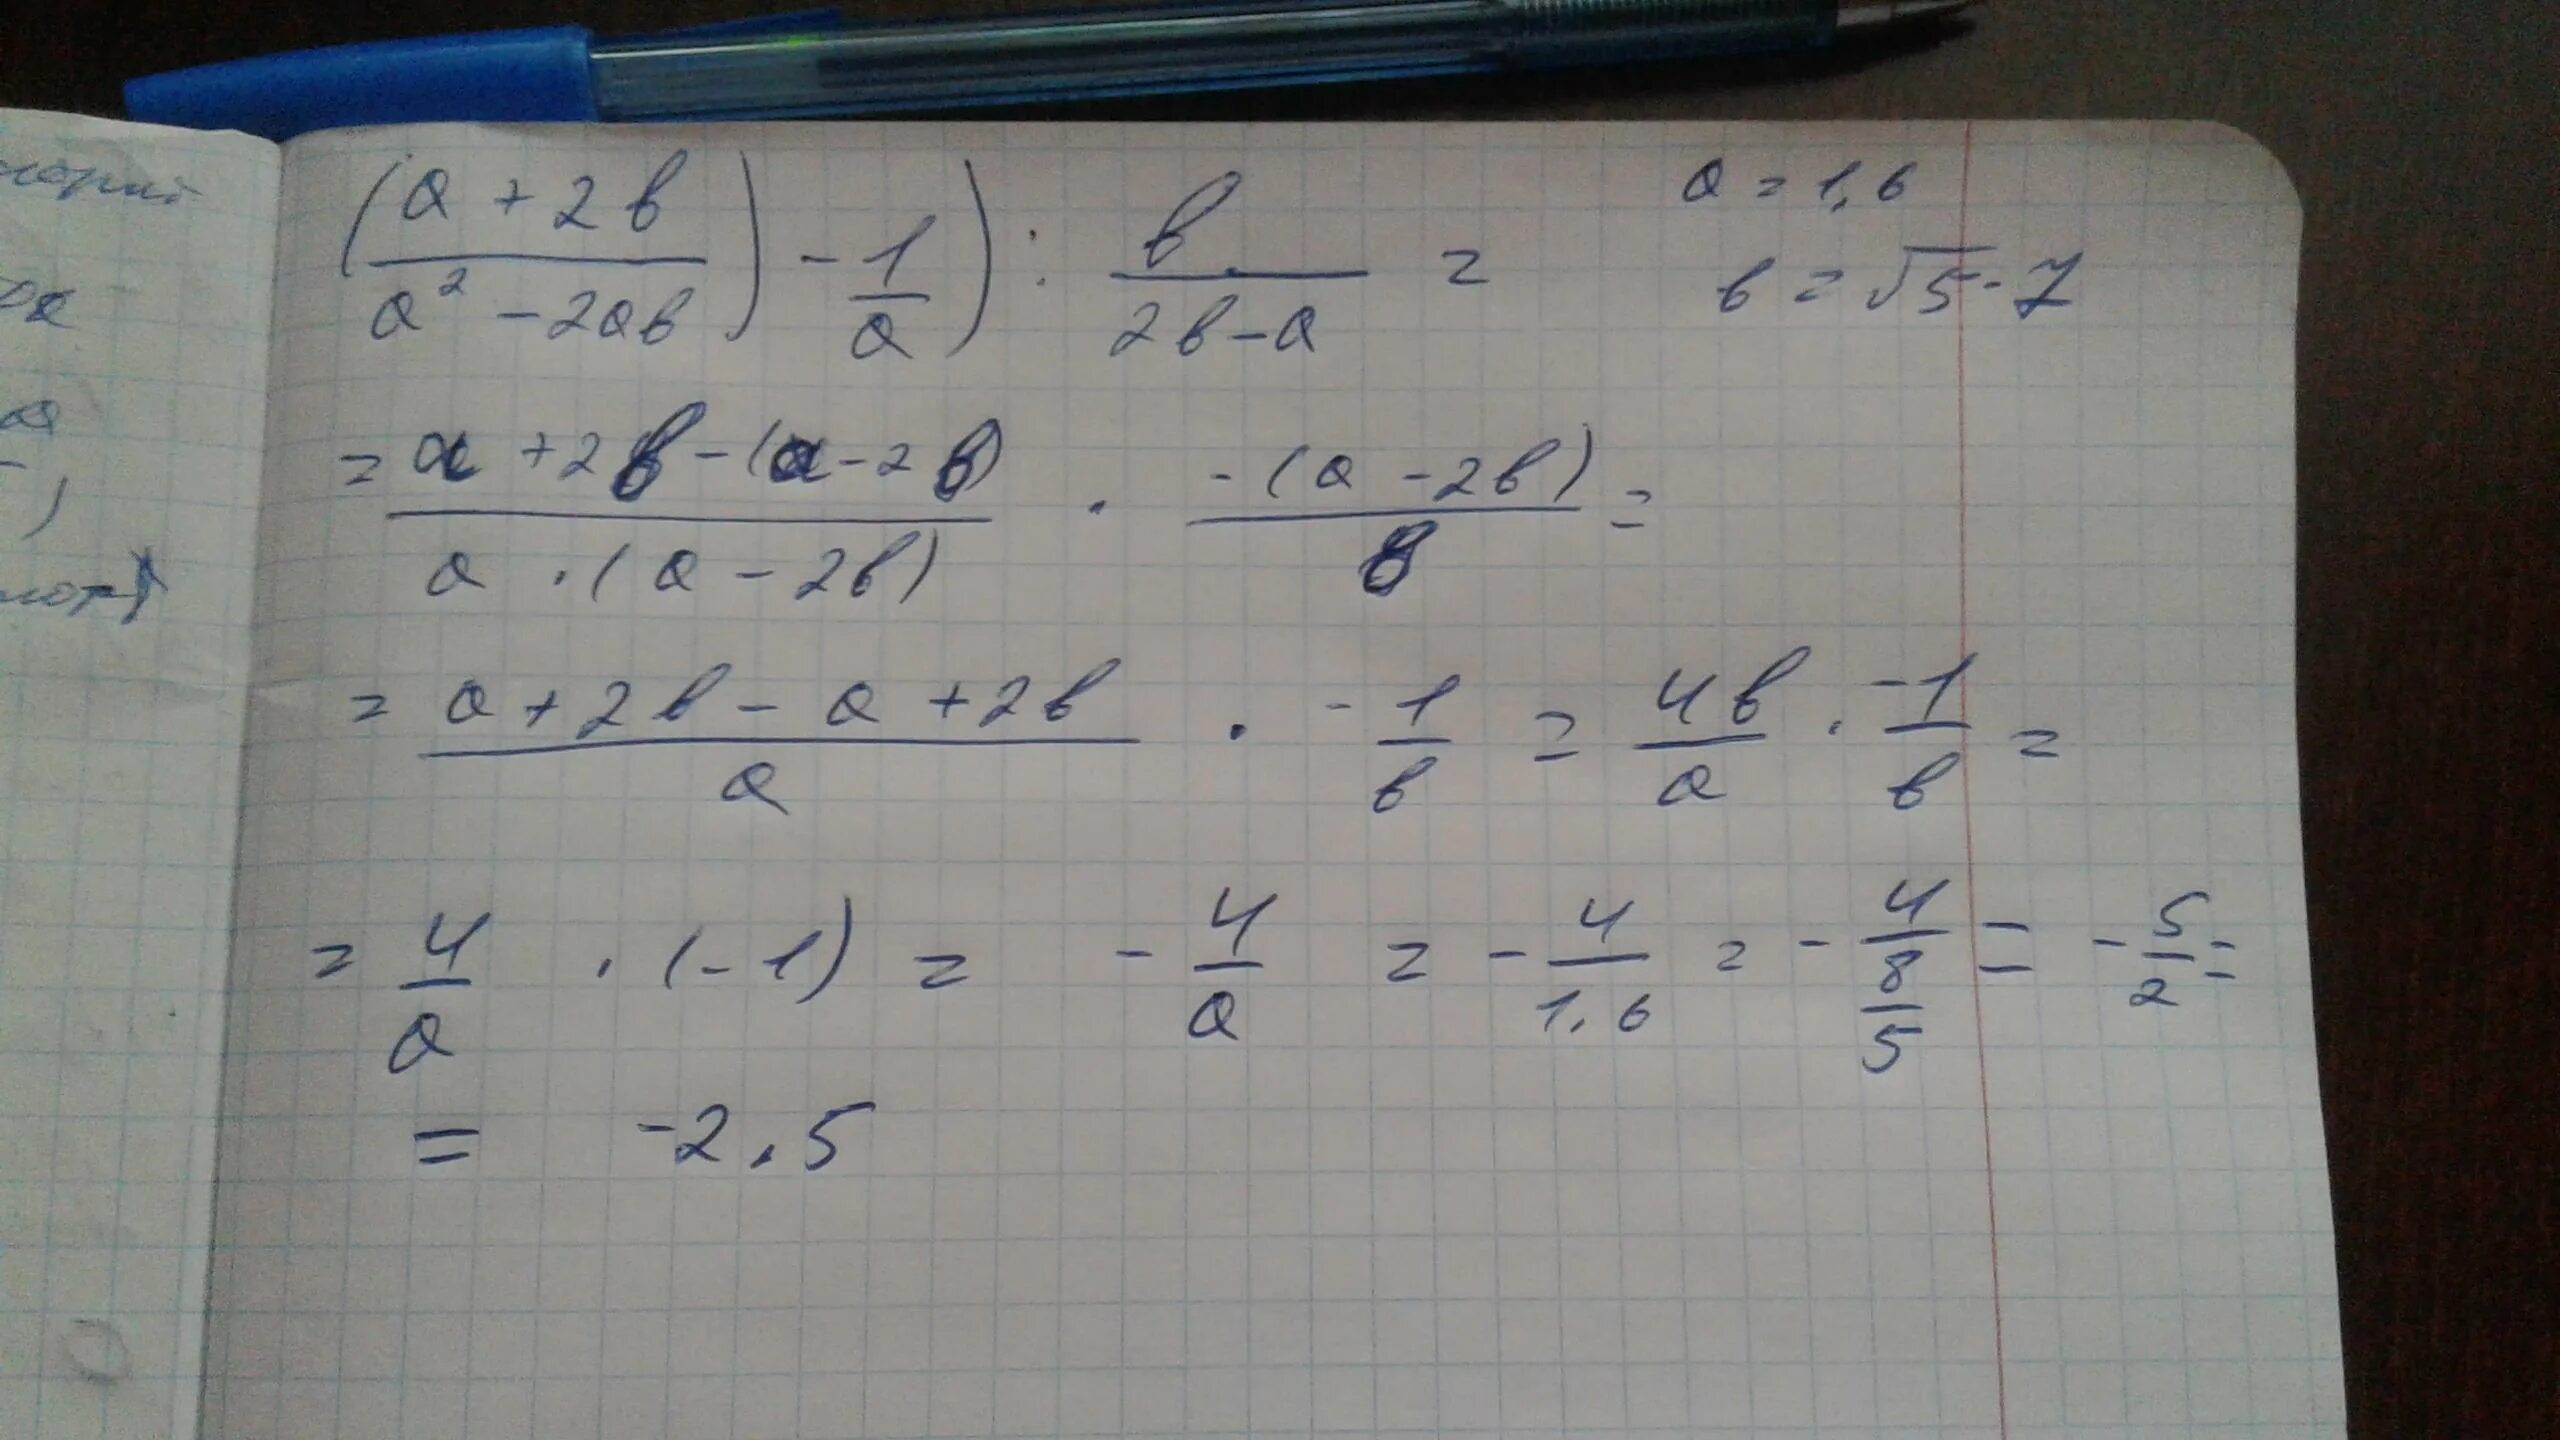 (a + 2b / a² - 2ab) - 1/a) : b / 2b - a =
a = 1,6
b = √5 - 7
= a + 2b - (a - 2b) / a · (a - 2b) · -(a - 2b) / b =
= a + 2b - a + 2b / a · -1/b = 4b/a · -1/b =
= 4/a · (-1) = -4/a = -4/1,6 = -4/8/5 = -5/2 =
= -2,5